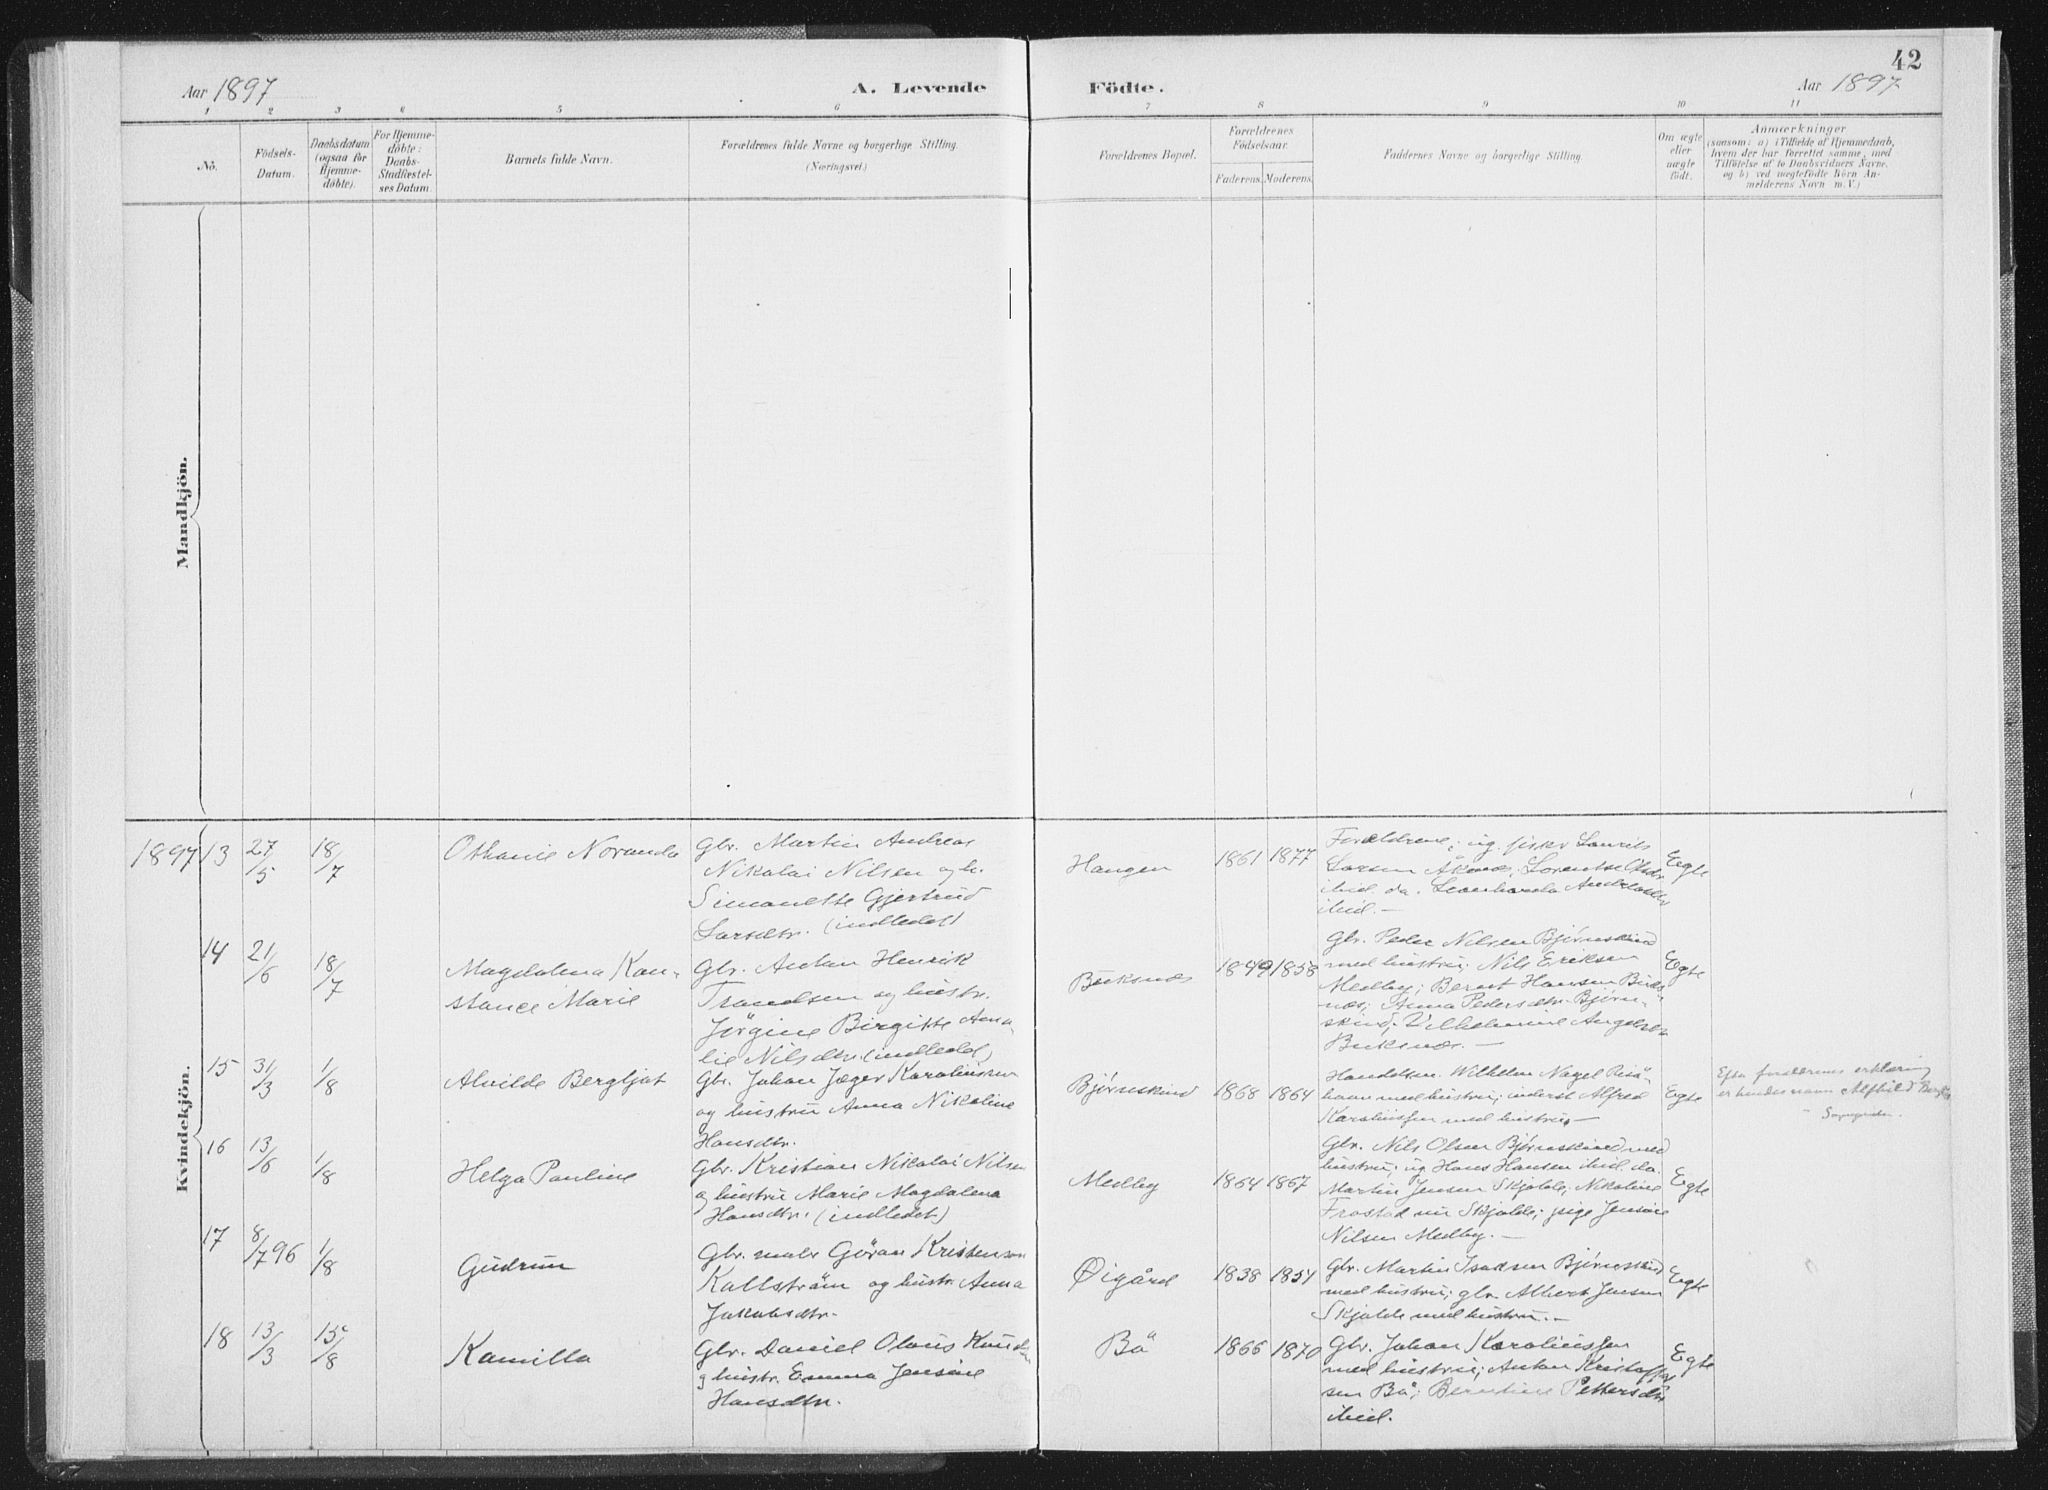 42
Aar 1897
A. Levende
Födte.
Aar 1897
1 2 3 4 5 6 7 8 9 10 11
No.
Födsels-
Datum.
Daabsdatum
(ogsaa för
Hjemme-
döbte).
For Hjemme-
döbte:
Daabs-
Stadfæstel-
ses Datum.
Barnets fulde Navn.
Forældrenes fulde Navne og borgerlige Stilling.
(Næringsvei.)
Forældrenes Bopæl.
Forældrenes
Födselsaar.
Faderens. Moderens.
Faddernes Navne og borgerlige Stilling.
Om ægte
eller
uægte
födt.
Anmærkninger
(saasom: a) i Tilfælde af Hjemmedaab,
hvem der har forrettet samme, med
Tilföielse af to Daabsvidners Navne,
og b) ved uægtefödte Börn An-
melderens Navn m. V.)
Mandkjön.
Kvindekjön.
1897 13 27/5 18/7
Othanie Noranda
Gbr. Martin Andreas
Nikolai Nilsen og h.
Simonette Gjertrud
Larsdtr. (indledet)
Haugen
1861 1877
Forældrene; ug. fisker Laurits
Larsen Åknes; Lorentse Olsdr
ibid. da. Leonharda Andreasen
ibid. —
Egte
14 21/6 18/7
Magdalena Kon-
stance Marie
Gbr. Anton Henrik
Trondsen og hustr.
Jørgine Birgitte Ama-
lie Nilsdtr. (indledet)
Buksnes
1849 1858
Gbr. Peder Nilsen Bjørnskind
med hustru; Nils Eriksen
Medby; Bernt Hansen Buks-
nes; Anna Pedersdtr. Bjørn-
skind; Vilhelmine Angelsen
Buksnes. —
Egte
15 31/3 1/8
Alvilde Bergljot
Gbr. Johan Jæger Karoliussen
og hustru Anna Nikoline
Hansdtr.
Bjørnskind
1868 1864
Handelsm. Wilhelm Nagel Risø-
havn med hustru; inderst Alfred
Karoliussen med hustru —
Egte
Efter forældrenes erklæring
er hendes navn Alfhild Bergljot
16 13/6 1/8
Helga Pauline
Gbr. Kristian Nikolai Nilsen
og hustru Marie Magdalena
Hansdtr. (indledet)
Medby
1864 1867
Gbr. Nils Olsen Bjørnskind med
hustru; ug Hans Hansen ibid. da.
Martin Jensen Skjolde; Nikoline
Frostad nu Skjolde; pige Jensine
Nilsen Medby. —
Egte
17 8/7 96 1/8
Gudrun
Gbr. maler Gøran Kristenson
Kallstrøm og hustr. Anna
Jakobsdtr.
Øigård
1838 1854
Gbr. Martin Isaksen Bjørnskind
med hustru; gbr. Albert Jensen
Skjolde med hustru. —
Egte
18 13/3 15/8
Kamilla
Gbr. Daniel Olaus Knudsen
og hustr. Emma Jensine
Hansdtr.
Bø
1866 1870
Gbr. Johan Karoliussen
med hustru; Anton Kristoffer
sen Bø; Berntine Pettersdtr
ibid.
Egte